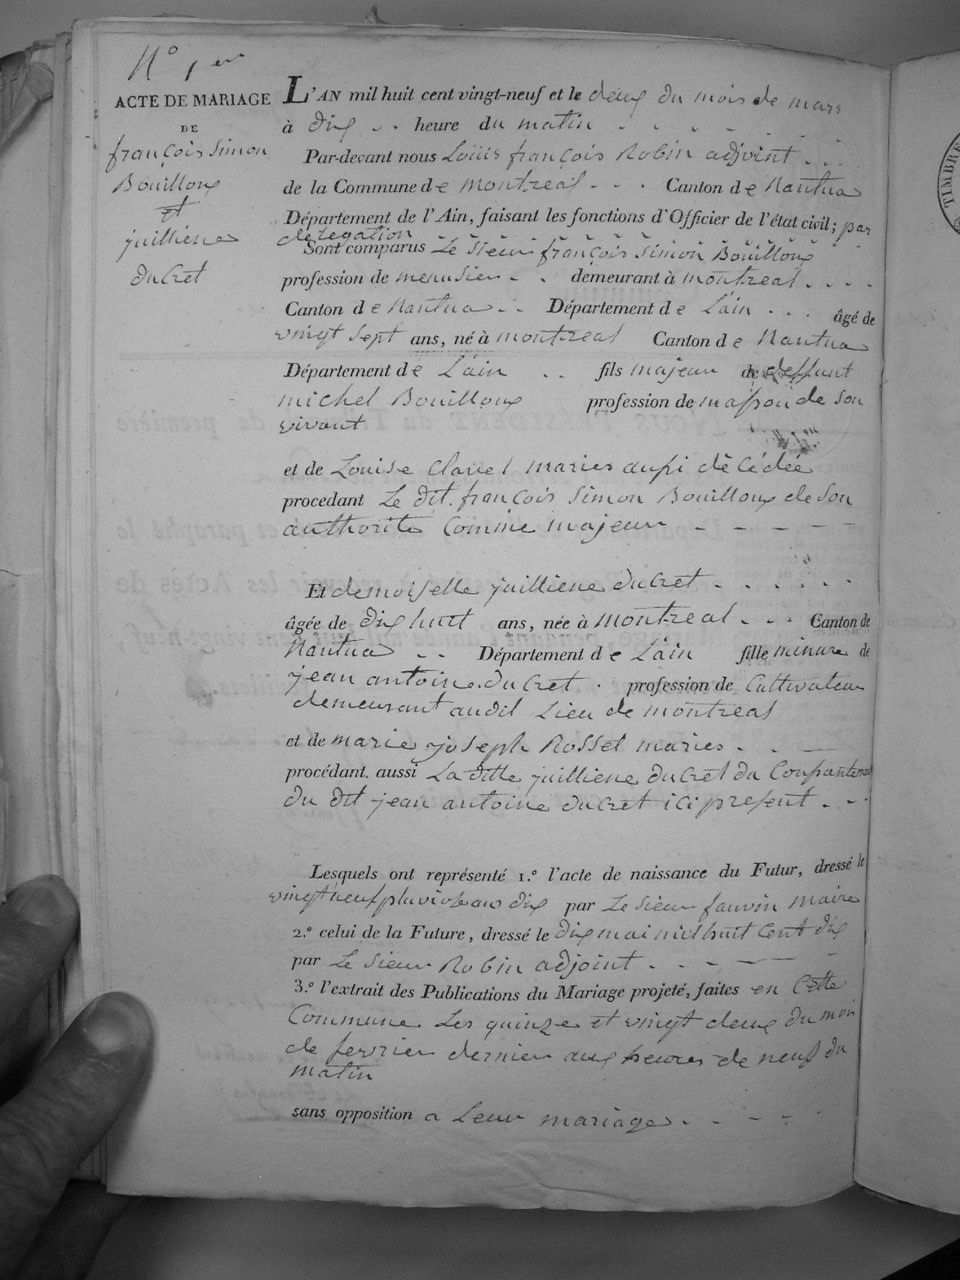 N.° 1er
ACTE DE MARIAGE
DE
françois Simon
Bouilloux
et
juilliene
ducret
L'AN mil huit cent vingt-neuf et le deux du mois de mars
à dix heure du matin
Par-devant nous Louis françois Robin adjoint
de la Commune de montreal Canton de Nantua
Département de l'Ain, faisant les fonctions d'Officier de l'état civil; par
delegation
Sont comparus Le Sieur françois Simon Bouilloux
profession de menusier demeurant à montreal
Canton de Nantua Département de L'ain âgé de
vingt Sept ans, né à montreal Canton de Nantua
Département de L'ain fils majeur de deffunt
michel Bouilloux profession de masson de Son
vivant
et de Louise Clavel maries aussi décédée
procedant Le dit françois Simon Bouilloux de Son
authorite Comme majeur
Et demoiselle juilliene ducret
âgée de dix huit ans, née à montreal Canton de
Nantua Département de L'ain fille minure de
jean antoine ducret profession de Cultivateur
demeurant audit Lieu de montreal
et de marie joseph Rosset maries
procédant aussi La ditte juilliene ducret du Consantement
du dit jean antoine ducret ici present
Lesquels ont représenté 1.° l'acte de naissance du Futur, dressé le
vingt neuf pluviose an dix par Le sieur fauvin maire
2.° celui de la Future, dressé le dix mai mil huit Cent dix
par Le Sieur Robin adjoint
3.° l'extrait des Publications du Mariage projeté, faites en Cette
Commune Les quinze et vingt deux du mois
de fevrier dernier aux heures de neuf du
matin
sans opposition a Leur mariage
TIMBRE